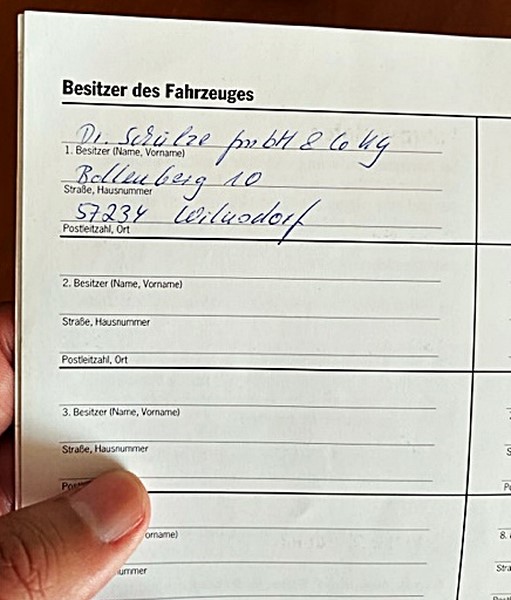 Besitzer des Fahrzeuges
Dr. Schulze GmbH & Co KG
1. Besitzer (Name, Vorname)
Bollenberg 10
Straße, Hausnummer
57234 Wilnsdorf
Postleitzahl, Ort
2. Besitzer (Name, Vorname)
Straße, Hausnummer
Postleitzahl, Ort
3. Besitzer (Name, Vorname)
Straße, Hausnummer
8.